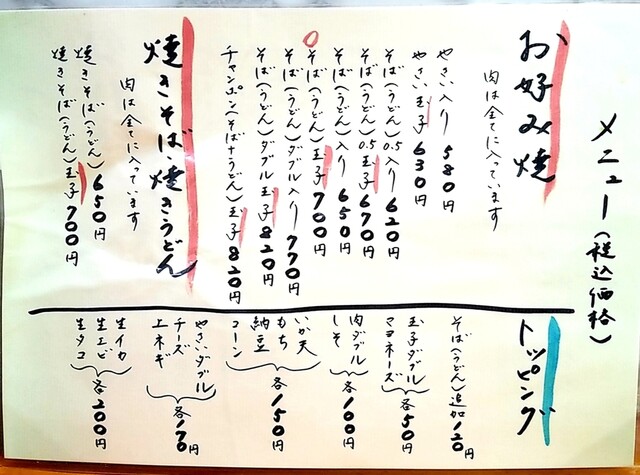 メニュー(税込価格)
お好み焼
肉は全てに入っています
やさい入り580円
やさい玉子630円
そば(うどん)0.5入り620円
そば(うどん)0.5玉子670円
そば(うどん)入り650円
そば(うどん)玉子700円
そば(うどん)ダブル入り770円
そば(うどん)ダブル玉子820円
チャンポン(そば+うどん)玉子820円
焼きそば・焼きうどん
肉は全てに入っています
焼きそば(うどん)650円
焼きそば(うどん)玉子700円
トッピング
そば(うどん)追加120円
玉子ダブル
マヨネーズ
各50円
肉ダブル
しそ
各100円
いか天
もち
納豆
コーン
各150円
やさいダブル
チーズ
上ネギ
各170円
生イカ
生エビ
生タコ
各200円